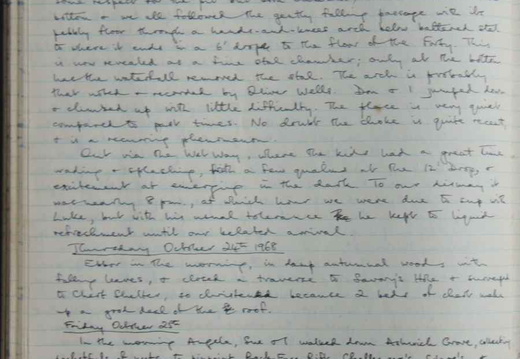 bottom & we all followed the gently falling passage with its
pebbly floor through a hands-and-knees arch below battered stal
to where it ends in a 6' drop to the floor of the Forty. This
is now revealed as a fine stal chamber; only at the bottom
has the waterfall removed the stal. The arch is probably
that noted & recorded by Oliver Wells. Don & I jumped down
& climbed up with little difficulty. The place is very quiet
compared to past times. No doubt the choke is quite recent,
& is a recurring phenomenon.
Out via the Wet Way, where the kids had a great time
wading & splashing, with a few qualms at the 12' Drop, &
excitement at emerging in the dark. To our dismay it
was nearly 8 pm., at which hour we were due to sup with
Luke, but with his usual tolerance he kept to liquid
refreshment until our belated arrival.
Thursday October 24th 1968
Ebbor in the morning, in damp autumnal woods with
falling leaves, & closed a traverse to Savory's Hole & surveyed
to Chert Shelter, so christened because 2 beds of chert make
up a good deal of the roof.
Friday October 25th
In the morning Angela, Sue & I walked down Ashwick Grove, collecting